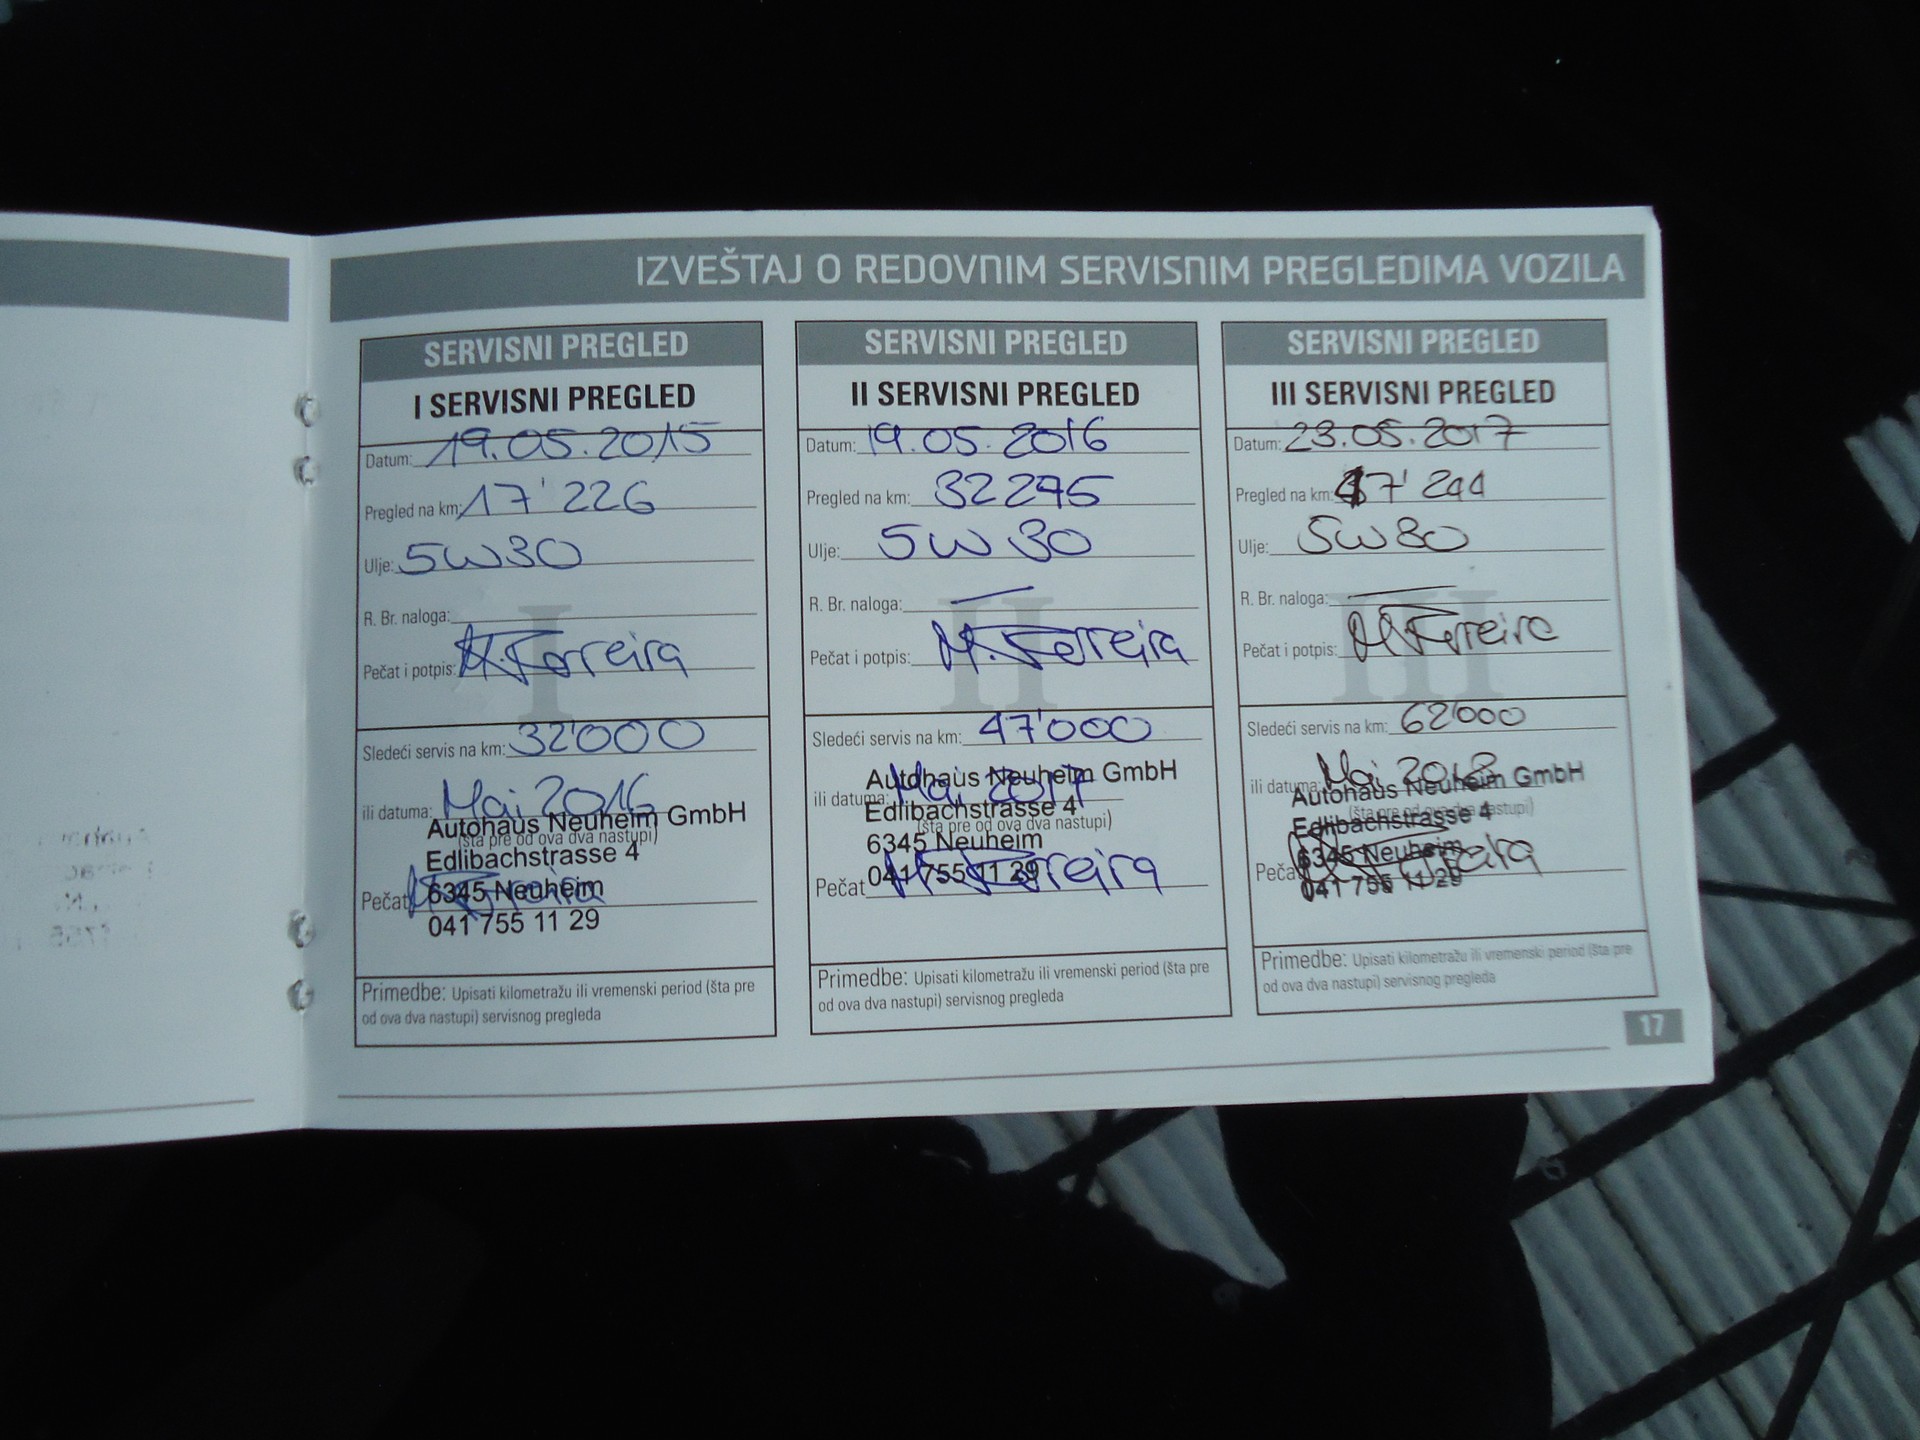 IZVEŠTAJ O REDOVNIM SERVISNIM PREGLEDIMA VOZILA
SERVISNI PREGLED
I SERVISNI PREGLED
Datum: 19.05.2015
Pregled na km: 17'226
Ulje: 5W30
R. Br. naloga:
Pečat i potpis: M.Ferreira
Sledeći servis na km: 32'000
ili datuma: Mai 2016
Autohaus Neuheim GmbH
(šta pre od ova dva nastupi)
Edlibachstrasse 4
6345 Neuheim
Pečat
041 755 11 29
Primedbe: Upisati kilometražu ili vremenski period (šta pre
od ova dva nastupi) servisnog pregleda
SERVISNI PREGLED
II SERVISNI PREGLED
Datum: 19.05.2016
Pregled na km: 32275
Ulje: 5W30
R. Br. naloga:
Pečat i potpis: M.Ferreira
Sledeći servis na km: 47'000
Autohaus Neuheim GmbH
ili datuma: Mai 2017
Edlibachstrasse 4
(šta pre od ova dva nastupi)
6345 Neuheim
Pečat M.Ferreira
041 755 11 29
Primedbe: Upisati kilometražu ili vremenski period (šta pre
od ova dva nastupi) servisnog pregleda
SERVISNI PREGLED
III SERVISNI PREGLED
Datum: 23.05.2017
Pregled na km:
Ulje: 5W30
R. Br. naloga:
Pečat i potpis: M Ferreira
Sledeći servis na km: 62'000
ili datuma: Mai 2018
Autohaus Neuheim GmbH
(šta pre od ova dva nastupi)
Edlibachstrasse 4
6345 Neuheim
041 755 11 29
Primedbe: Upisati kilometražu ili vremenski period (šta pre
od ova dva nastupi) servisnog pregleda
17